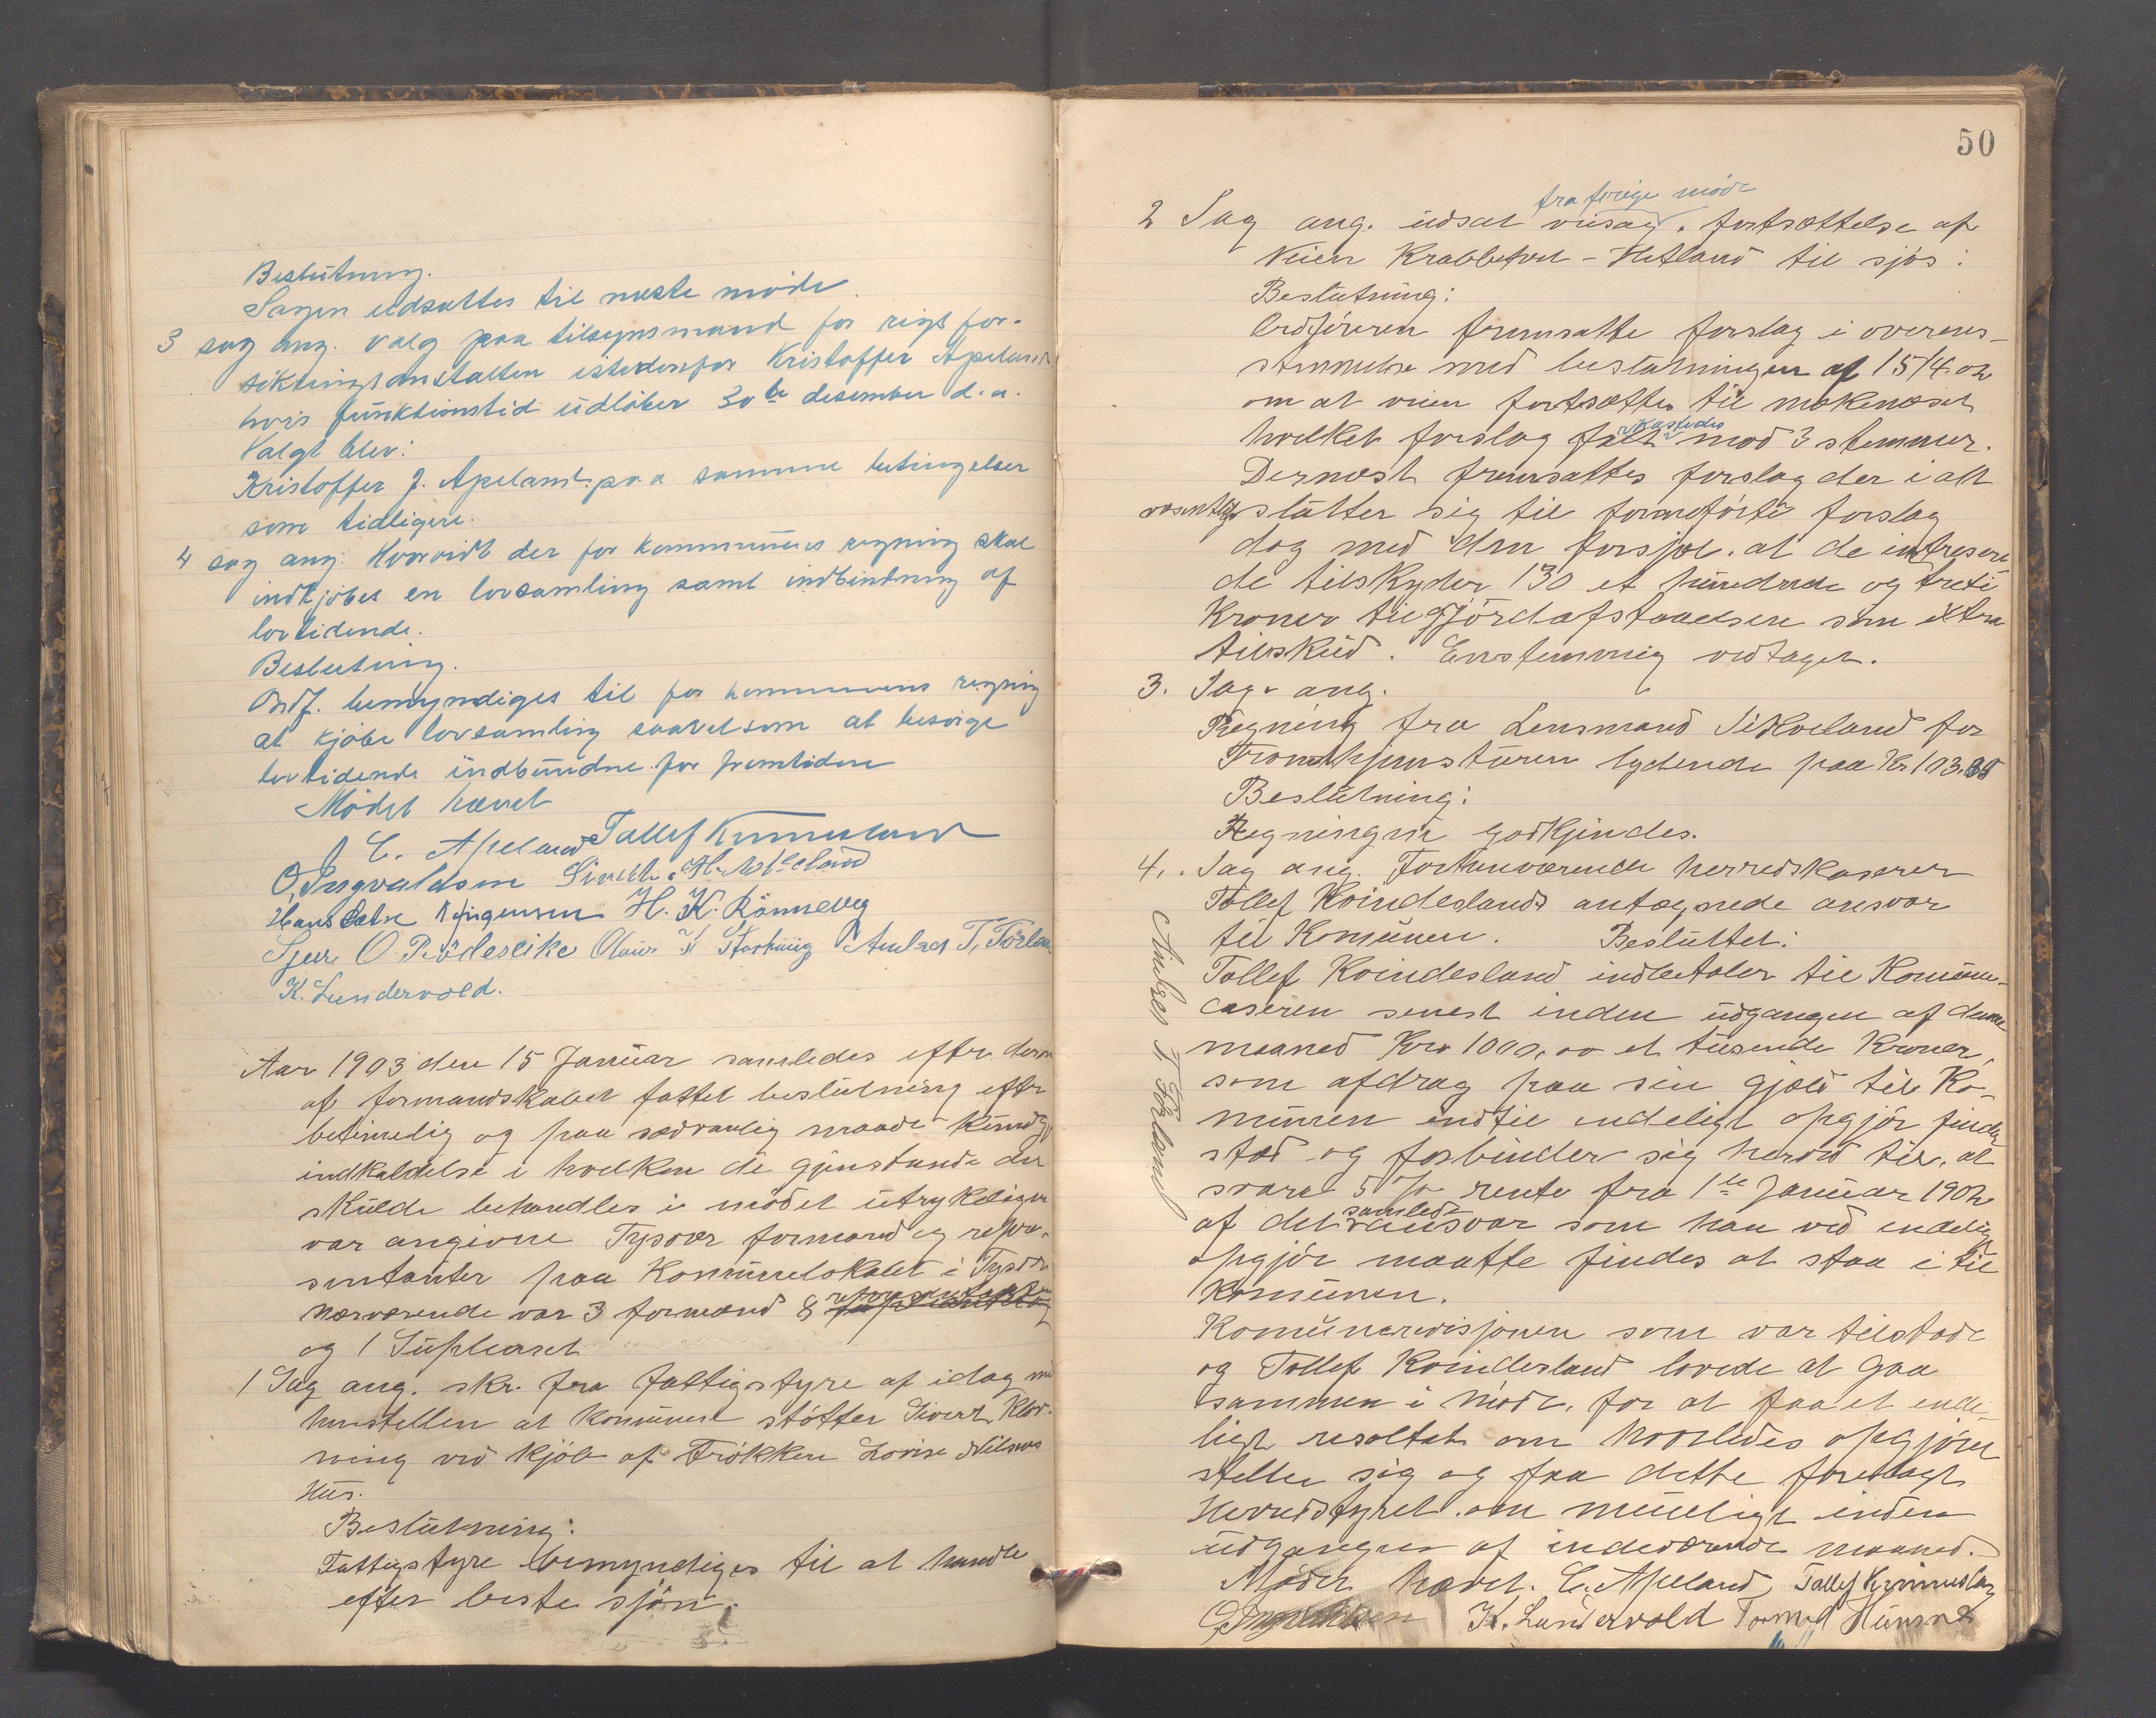 Beslutning.
Sagen udsattes til næste møde.
3 sag ang. valg paa tilsynsmand for rigsfor-
sikringsanstalten istedenfor Kristoffer Apeland
hvis funktionstid udløber 30te desember d.a.
Valgt blev:
Kristoffer J. Apeland paa samme betingelser
som tidligere.
4 sag ang. Hvorvidt der for kommunens regning skal
indkjøbes en lovsamling samt indbindning af
lovtidende.
Beslutning.
Ordf. bemyndiges til for kommunens regning
at kjøbe lovsamling saavelsom at besørge
lovtidende indbundne for fremtiden
Mødet hævet
C. Apeland Tollef Kvinnesland
O. Ingvaldsen Sivert H.
Hans Jørgensen H. K. Rønnevig
Sjur O. Olaus K Andreas T. Førland
K. Lundervold.
Aar 1903 den 15 Januar samledes efter derom
af formandskabet fattet beslutning efter
betimelig og paa sædvanlig maade kundgj.
indkaldelse i hvilken de gjenstande der
skulde behandles i mødet utrykkeligen
var angivne Tysvær formænd og repræ-
sentanter paa Komunelokalet i Tysvær
Nærværende var 3 formænd 8 repræsentanter
og 1 Supleant
1 Sag ang. skr. fra fattigstyre af idag med
henstellen at komunen støtter Sivert Kløv-
ning ved kjøb af Frøkken Lovise Nilsens
Hus.
Beslutning:
Fattigstyre bemyndiges til at handle
efter beste sjøn.
50
fra forige møde
2 Sag ang. udsat veisag. fortsættelse af
Veien Krabbetveit - Hetland til sjøs:
Beslutning:
Ordføreren fremsatte forslag i overens-
stemmelse med beslutningen af 15/4 02
om at veien fortsættes til
hvilket forslag faldt forkastedes mod 3 stemmer.
Dernæst fremsattes forslag der i alt
væsentlig støtter sig til forneførte forslag
dog med den forsjæl. at de intresere
de tilskyder 130 et hundrede og treti
Kroner til gjørdafstaaelsen som extra
tilskud. Enstemmig vedtaget.
3. Sag ang.
Regning fra Lensmand Sikveland for
Trondhjemsturen lydende paa Kr 103.85
Beslutning:
Regningen godkjendes.
4. Sag ang. Forhenværende herredskaserer
Tollef Kvindeslands antegnede ansvar
til Komunen. Besluttet:
Tollef Kvindesland indbetaler til Komune-
caseren senest inden udgangen af denne
maaned Kr 1000,00 et tusende Kroner,
som afdrag paa sin gjæld til Ko-
munen indtil endeligt opgjør finder
sted og forbinder sig herved til, at
svare 5 % rente fra 1te Januar 1902
af det samlede ansvar som han ved endelig
opgjør maatte findes at staa i til
Komunen.
Komunerevisjonen som var tilstede
og Tollef Kvindesland lovede at gaa
sammen i møde, for at faa et ende-
ligt resoltat om hvorledes opgjøret
steller sig og faa dette forelagt
Herredstyret om mueligt inden
udgangen af indeværende maaned.
Mødet hævet. C. Apeland Tollef Kvinnesland
O. Ingvaldsen K. Lundervold Tormod
Andreas T. Førland